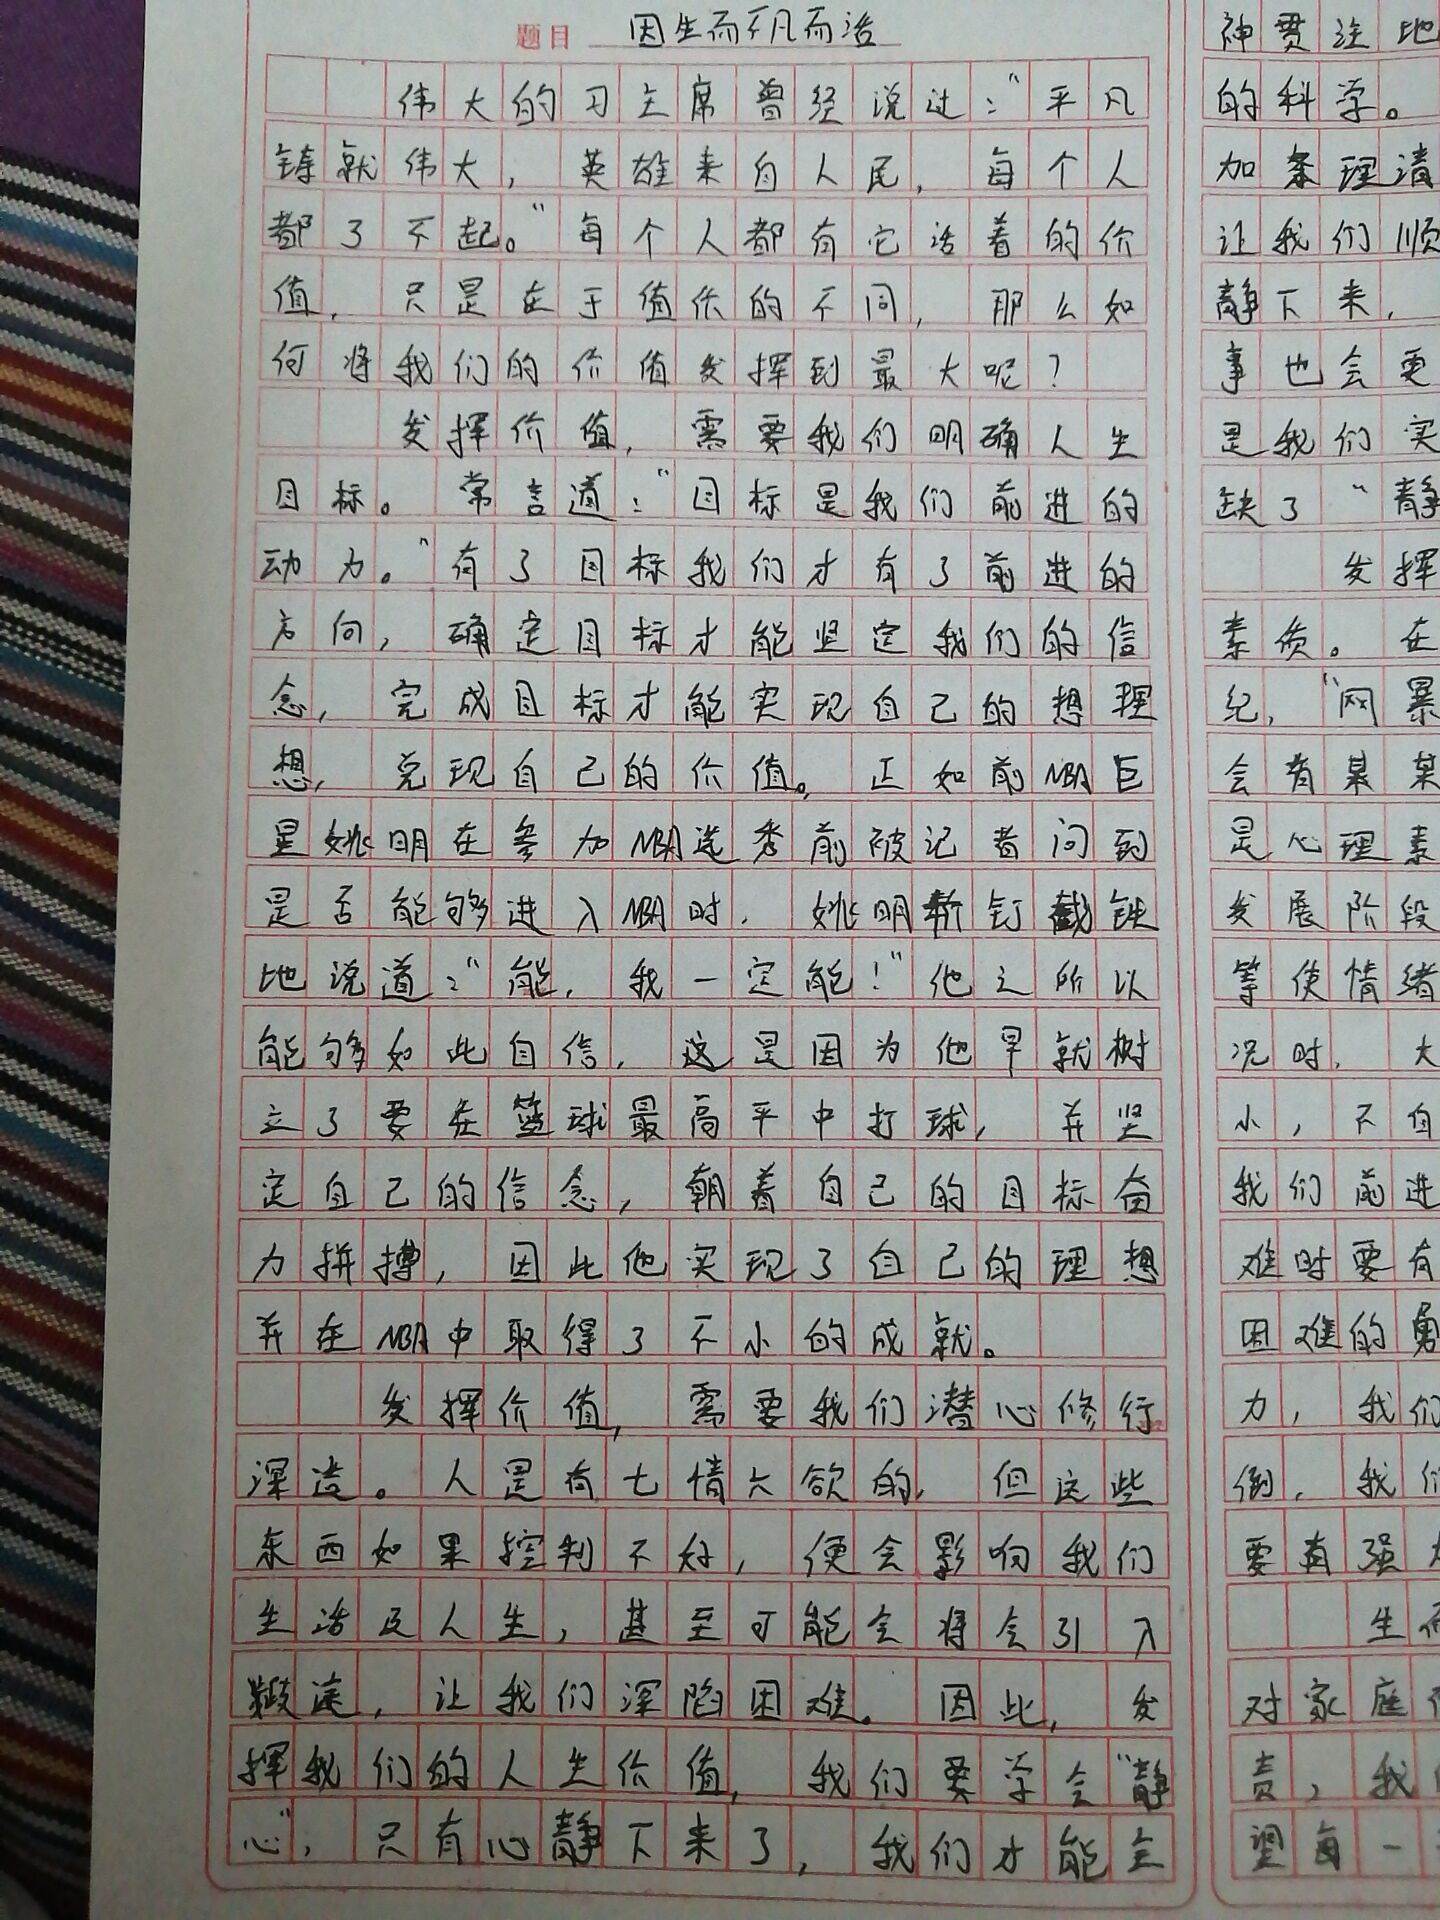 题目 因生而不凡而活
伟大的习主席曾经说过："平凡
铸就伟大，英雄来自人民，每个人
都了不起。"每个人都有它活着的价
值，只是在于值价的不同，那么如
何将我们的价值发挥到最大呢？
发挥价值，需要我们明确人生
目标。常言道："目标是我们前进的
动力。"有了目标我们才有了前进的
方向，确定目标才能坚定我们的信
念，完成目标才能实现自己的想理
想，兑现自己的价值。正如前NBA巨
星姚明在参加NBA选秀前被记者问到
是否能够进入NBA时，姚明斩钉截铁
地说道："能，我一定能！"他之所以
能够如此自信，这是因为他早就树
立了要在篮球最高平中打球，并坚
定自己的信念，朝着自己的目标奋
力拼搏，因此他实现了自己的理想
并在NBA中取得了不小的成就。
发挥价值，需要我们潜心修行
深造。人是有七情六欲的，但这些
东西如果控制不好，便会影响我们
生活及人生，甚至可能会将会引入
歧途，让我们深陷困难。因此，发
挥我们的人生价值，我们要学会"静
心"，只有心静下来了，我们才能全
神贯注地
的科学。
加条理清
让我们顺
静下来，
事也会更
是我们实
缺了"静
发挥
素质。在
纪，"网暴
会有某某
是心理素
发展阶段
等使情绪
况时，大
小，不自
我们前进
难时要有
困难的勇
力，我们
倒，我们
要有强大
生而
对家庭
责，我们
望每一